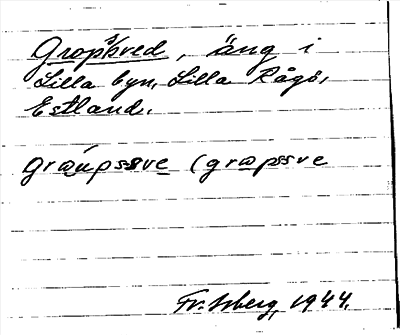 Gropsved, äng i
Lilla byn, Lilla Rågö,
Estland.
graupssve (grapssve
Fr. Isberg, 1944.